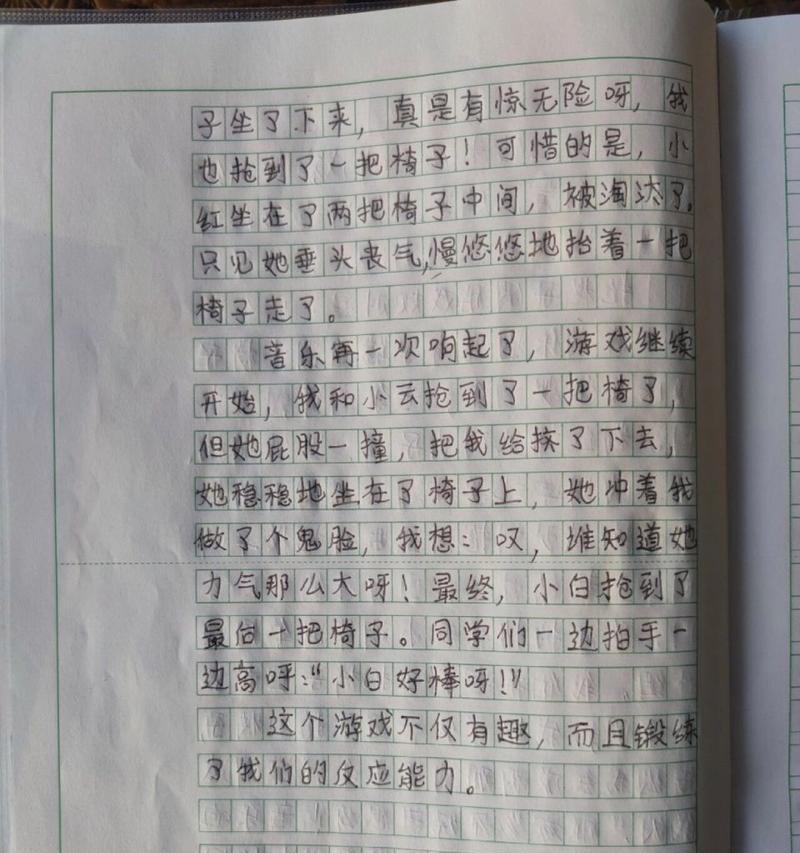 子坐了下来，真是有惊无险呀，我
也抢到了一把椅子！可惜的是，小
红坐在了两把椅子中间，被淘汰了。
只见她垂头丧气，慢悠悠地抬着一把
椅子走了。
音乐再一次响起了，游戏继续
开始，我和小云抢到了一把椅了，
但她屁股一撞，把我给挤了下去，
她稳稳地坐在了椅子上，她冲着我
做了个鬼脸，我想：叹，谁知道她
力气那么大呀！最终，小白抢到了
最后一把椅子。同学们一边拍手一
边高呼：“小白好棒呀！”
这个游戏不仅有趣，而且锻练
了我们的反应能力。